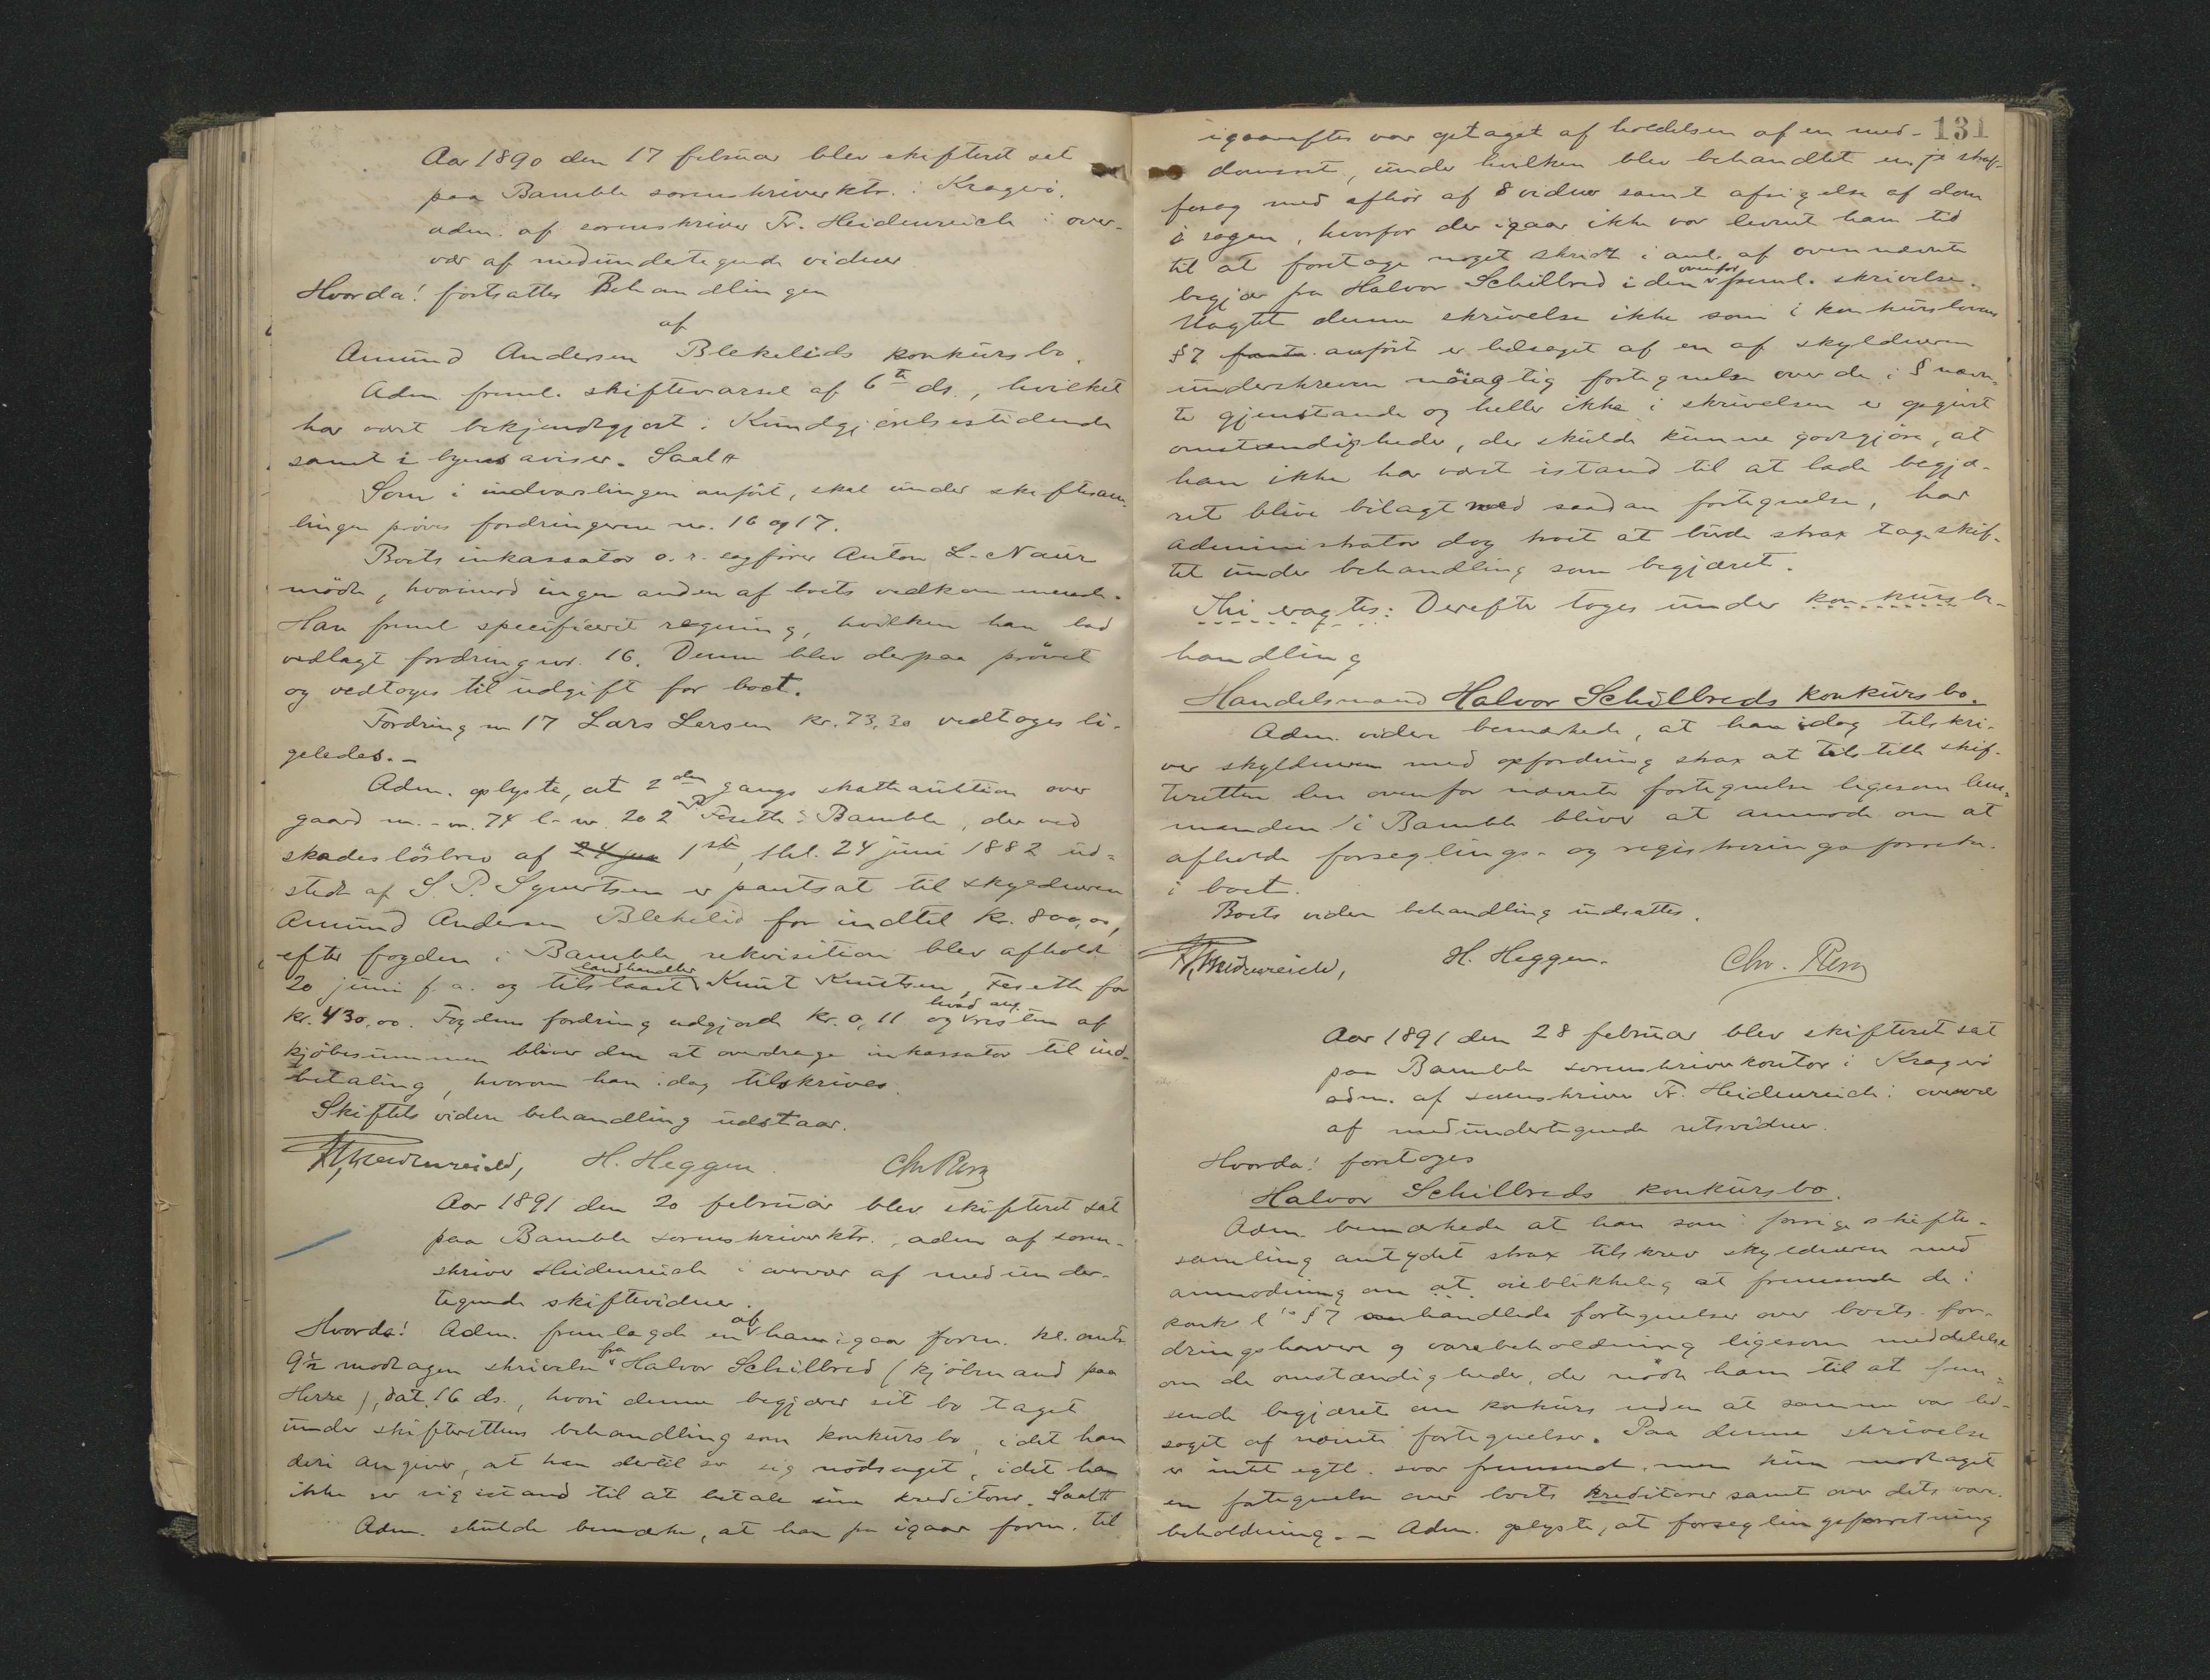 Aar 1890 den 17 februar blev skifteret sat
paa Bamble sorenskriverktr. i Kragerö,
adm. af sorenskriver Fr. Heidenreich i over-
vær af medundertegnede vidner.
Hvorda! fortsattes Behandlingen
af
Amund Andersen Blekelids konkursbo.
Adm freml. skiftevarsel af 6te ds., hvilket
har været bekjendtgjort i Kundgjörelsestidende
samt i byens aviser. Saal#
Som i indvarslingen anfört, skal under skiftesam-
lingen pröves fordringerne nr. 16 og 17.
Boets inkassator o. r. sagförer Anton L. Naur
mödte, hvorimod ingen anden af boets vedkommende.
Han freml specificeret regning, hvilken han lod
vedlagt fordring nr. 16. Denne blev derpaa prövet
og vedtoges til udgift for boet.
Fordring nr 17 Lars Larsen kr. 73,30 vedtoges li-
geledes. -
Adm. oplyste, at 2den gangs skatteauktion over
gaard m.-nr. 74 l.-nr. 202 Feseth i Bamble, der ved
skadeslösbrev af 24 jun 1ste, thl. 24 juni 1882 ud-
stedt af S. P. Syvertsen er pantsat til skyldneren
Amund Andersen Blekelid for indtil kr. 800,00,
efter fogden i Bamble rekvisition blev afholdt
20 juni f. a. og tilslaaet landhandler Knut Knutsen, Feseth for
kr. 430,00. Fogdens fordring udgjorde kr. 0,11 og hvad ang. resten af
kjöbesummen bliver den at overdrage inkassator til ind-
betaling, hvorom han idag tilskrives.
Skiftets videre behandling udstaar.
Fr. Heidenreich, H. Heggen. Chr
Aar 1891 den 20 februar blev skifteret sat
paa Bamble sorenskriverktr., adm af soren-
skriver Heidenreich i overvær af medunder-
tegnede skiftevidner.
Hvorda! Adm. fremlagde en af ham igaar form. kl. omtr
9½ modtagen skrivelse fra Halvor Schilbred (kjöbmand paa
Herre), dat. 16 ds., hvori denne begjærer sit bo taget
under skifterettens behandling som konkursbo, idet han
deri angiver, at han dertil ser sig nödsaget, idet han
ikke ser sig istand til at betale sine kreditorer. Saal#
Adm. skulde bemærke, at han fra igaar form. til
131
igaaraftes var optaget af holdelsen af en med-
domsret, under hvilken blev behandlet en straf-
fesag med afhör af 8 vidner samt afsigelse af dom
i sagen, hvorfor der igaar ikke var levnet ham tid
til at foretage noget skridt i anl. af ovennævnte
begjær fra Halvor Schilbred i den ovenfor freml. skrivelse.
Uagtet denne skrivelse ikke som i konkurslovens
§7 anfört er ledsaget af en af skyldneren
underskreven nöiagtig fortegnelse over de i § nævn-
te gjenstande og heller ikke i skrivelsen er opgivet
omstændigheder, der skulde kunne godtgjöre, at
han ikke har været istand til at lade begjæ-
ret blive bilagt med saadan fortegnelse, har
administrator dog troet at burde strax tage skif-
tet under behandling som begjæret.
Thi vagtes: Derefter toges under konkursbe-
handling
Handelsmand Halvor Schilbreds konkursbo.
Adm. videre bemærkede, at han idag tilskri-
ver skyldneren med opfordring strax at tilstille skif-
teretten den ovenfor nævnte fortegnelse ligesom lens-
manden i Bamble bliver at anmode om at
afholde forseglings- og registreringsforretn.
i boet.
Boets videre behandling udsattes.
Fr. Heidenreich, H. Heggen. Chr.
Aar 1891 den 28 februar blev skifteret sat
paa Bamble sorenskriverkontor i Kragerö
adm. af sorenskriver Fr. Heidenreich i overvær
af medundertegnede retsvidner.
Hvorda! foretoges
Halvor Schilbreds konkursbo.
Adm. bemærkede at han som i forrige skifte-
samling antydet strax tilskrev skyldneren med
anmodning om at öieblikkelig at fremsende de i
konk. l §7 omhandlede fortegnelser over boets for-
dringshavere og varebeholdning ligesom meddelelse
om de omstændigheder, der nödte ham til at frem-
sende begjæret om konkurs uden at samme var led-
saget af nævnte fortegnelser. Paa denne skrivelse
er intet egtl. svar fremsendt, men kun modtaget
en fortegnelse over boets kreditorer samt over dets vare-
beholdning. - Adm. oplyste, at forseglingsforretning